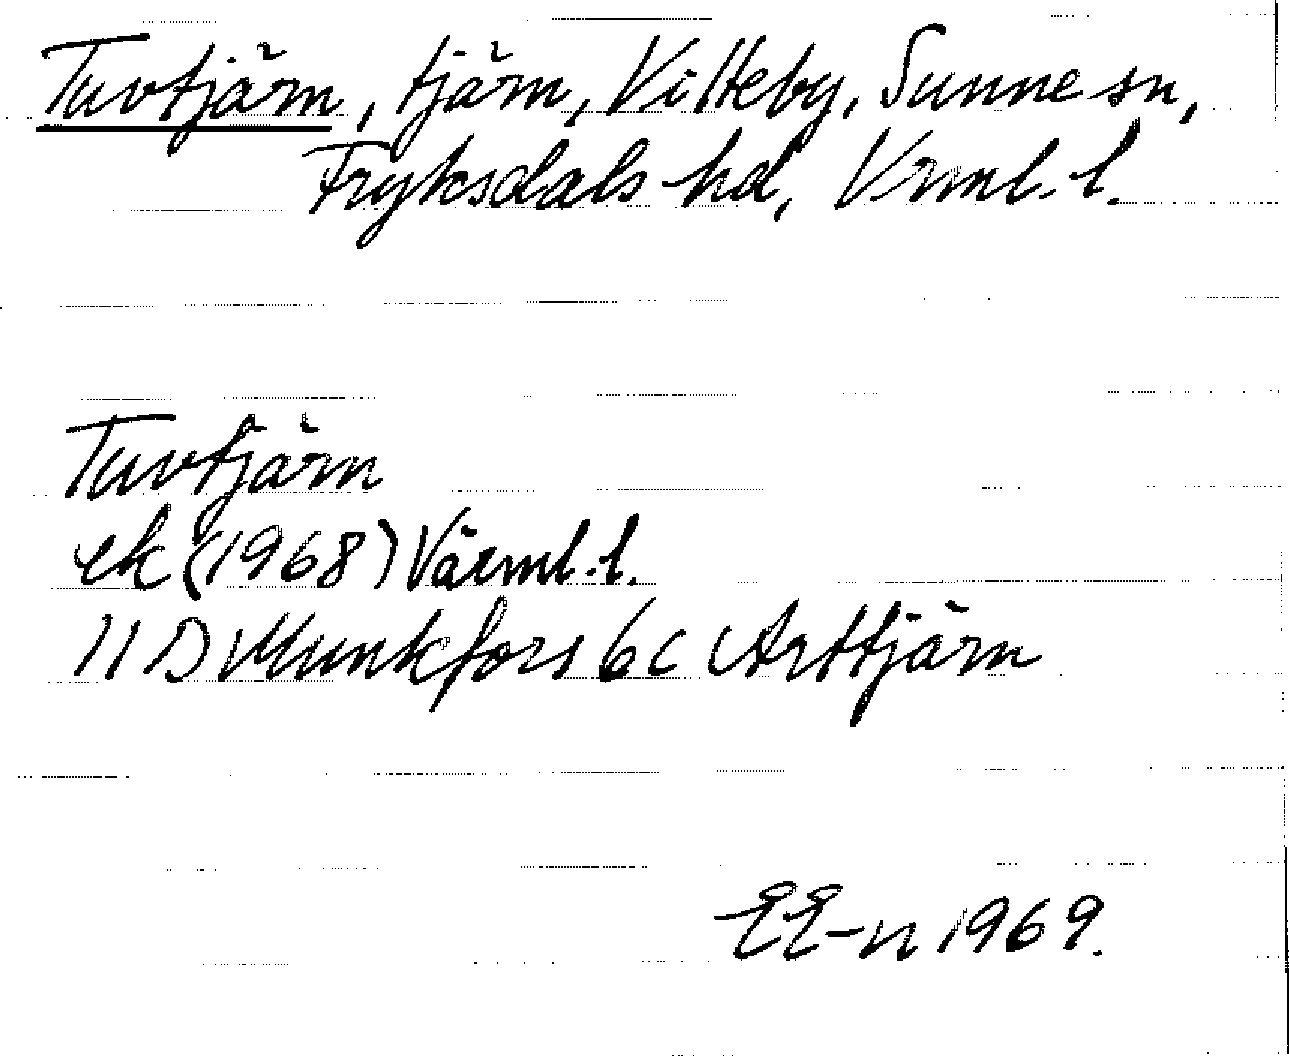 Tuvtjärn, tjärn, Vitteby, Sunne sn,
Fryksdals hd, Vrml. l.
Tuvtjärn
ek (1968) Värml. l.
11 D Munkfors 6 c Arttjärn
EE-n 1969.